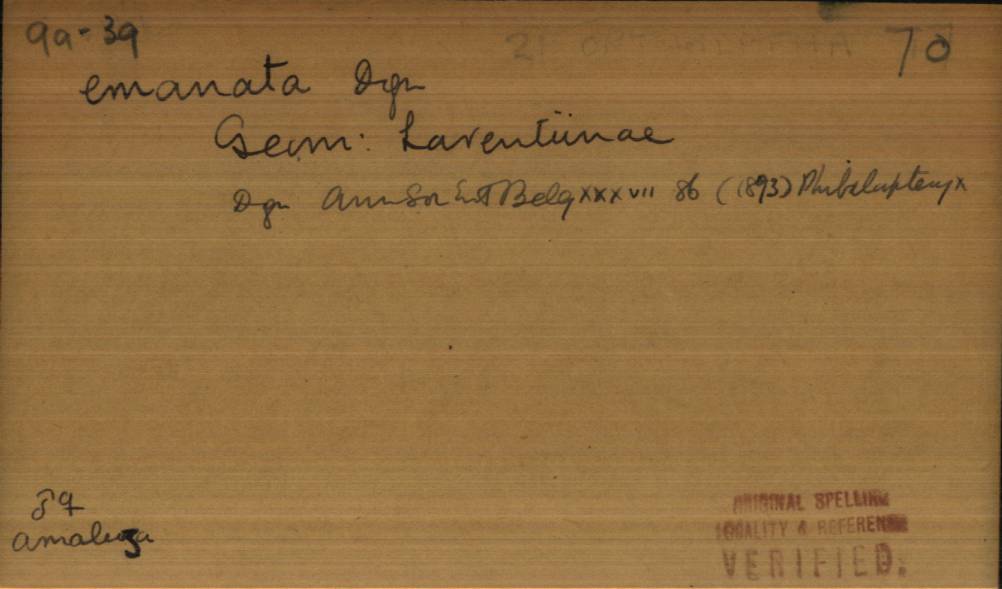 9a-39
70
emanata Dgn
Geom: Larentiinae
Dgn Ann Soc Ent Belg XXXVII 86 (1893) Phibalapteryx
♂♀
amaluza
ORIGINAL SPELLING
LOCALITY & REFERENCE
VERIFIED.